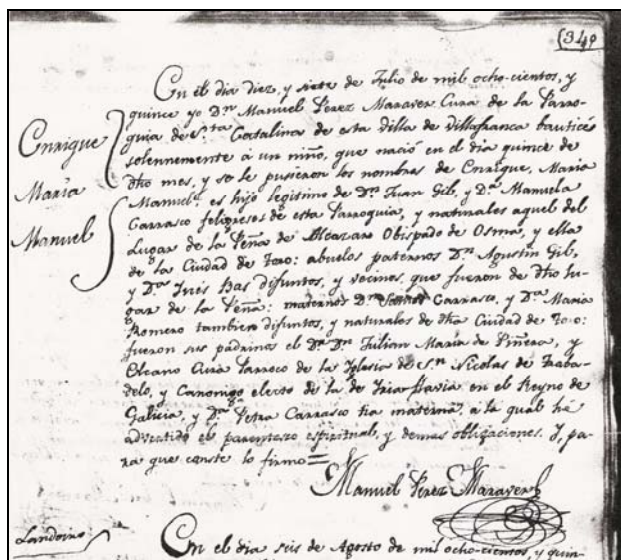 349
En el dia diez, y siete de Julio de mil ocho-cientos, y
quince yo Dn. Manuel Perez Maraver Cura de la Parro-
quia de Sta. Catalina de esta Villa de Villafranca bauticé
solennemente a un niño, que nació en el dia quince de
dho mes, y se le pusieron los nombres de Enrique, Maria
Manuel, es hijo legitimo de Dn. Juan Gil, y Da. Manuela
Carrasco feligreses de esta Parroquia, y naturales aquel del
Lugar de la Peña de Alcazar Obispado de Osma, y ella
de la Ciudad de Toro: abuelos paternos Dn. Agustin Gil,
y Da. Inés Bas difuntos, y vecinos, que fueron de dho lu-
gar de la Peña: maternos Dn. Carrasco, y Da. Maria
Romero tambien difuntos, y naturales de dha Ciudad de Toro:
fueron sus padrinos el Dr. Dn. Julian Maria de Piñera, y
Elcano Cura Parroco de la Iglesia de Sn. Nicolas de Traba-
delo, y Canonigo electo de la de Iria-flavia en el Reyno de
Galicia, y Da. Petra Carrasco tia materna, a la qual hé
advertido el parentesco espiritual, y demas obligaciones. Y, pa-
ra que conste lo firmo=
Manuel Perez Maraver
Enrique
Maria
Manuel
En el dia seis de Agosto de mil ocho-cientos, y quin-